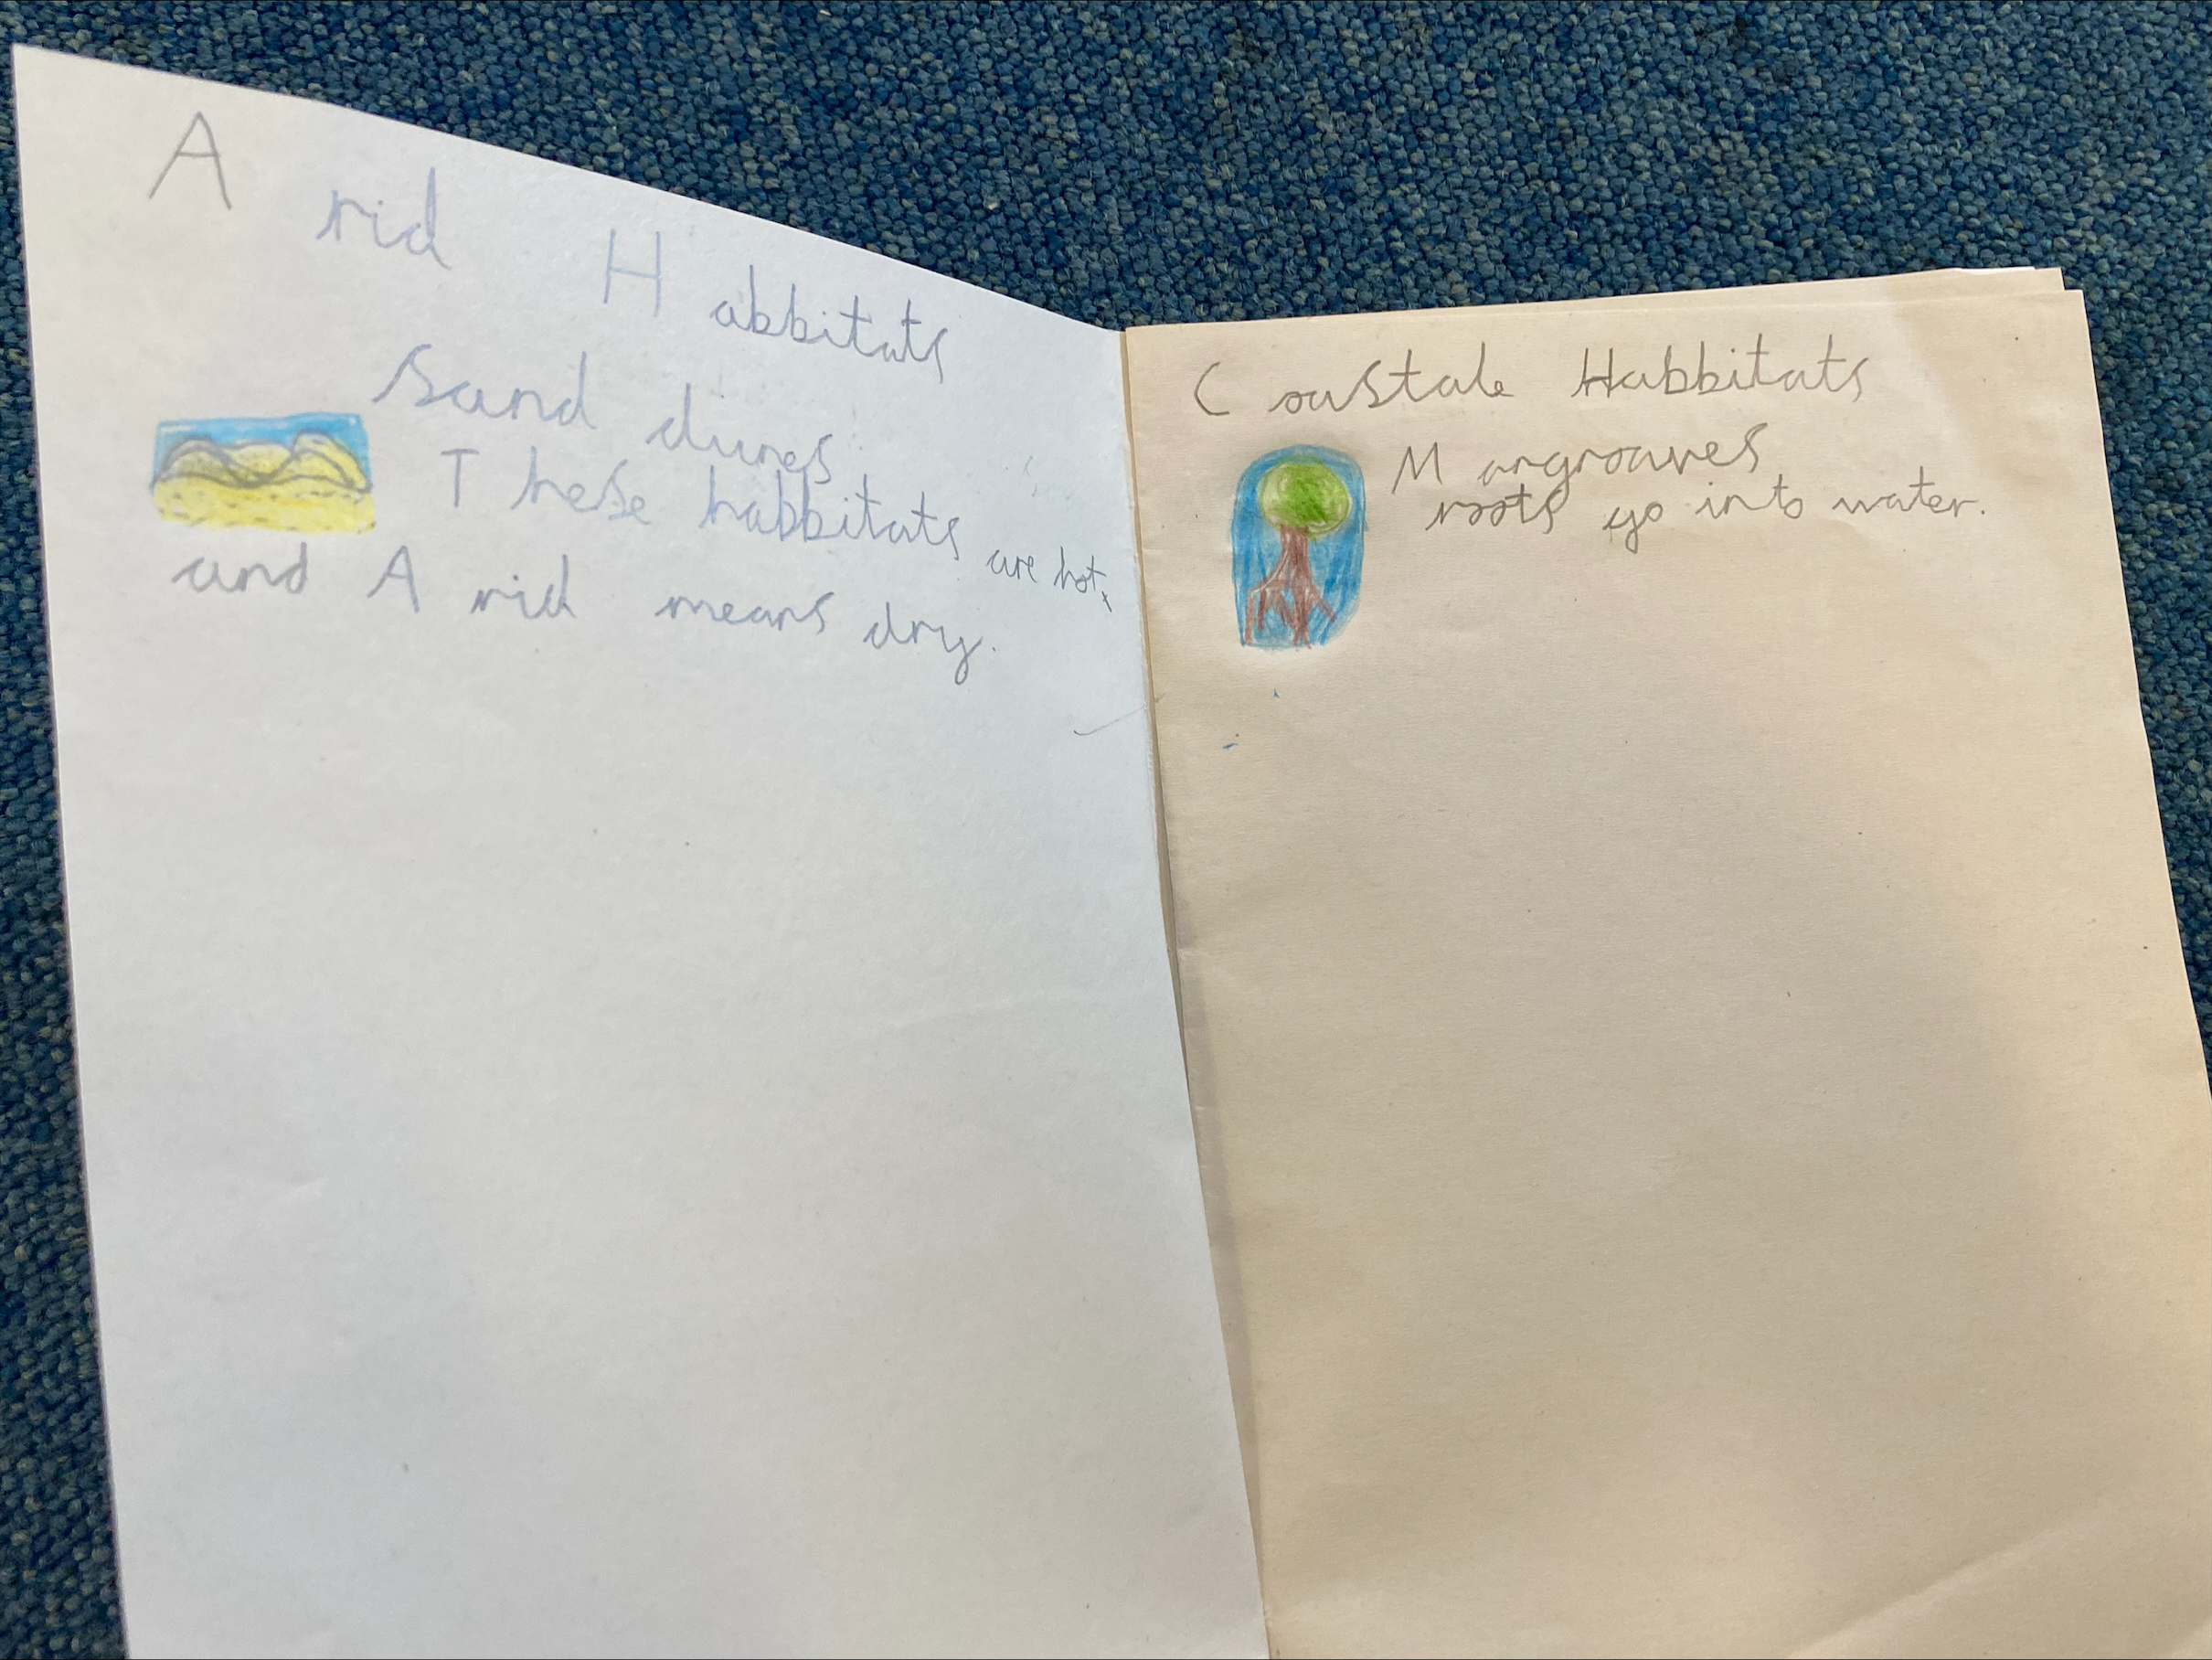 Arid Habbitats
Sand dunes
These habbitats are hot,
and Arid means dry.
Coastale Habbitats
Mangroaves
roots go into water.